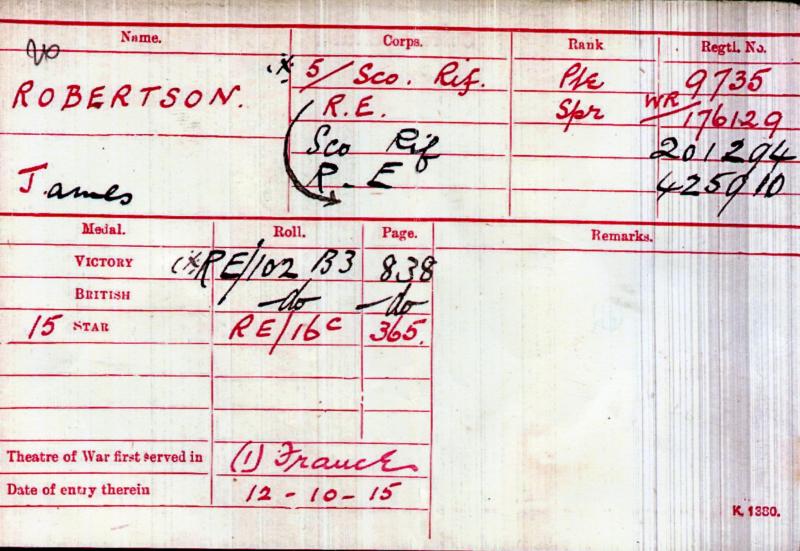 Name. Corps. Rank Regtl. No.
ROBERTSON. 5/Sco. Rif. Pte 9735
R.E. Spr WR/176129
Sco Rif 201294
James R.E 425910
Medal. Roll. Page. Remarks.
VICTORY RE/102 B3 838
BRITISH -do -do
15 STAR RE/16C 365.
Theatre of War first served in (1) France
Date of entry therein 12-10-15
K. 1380.